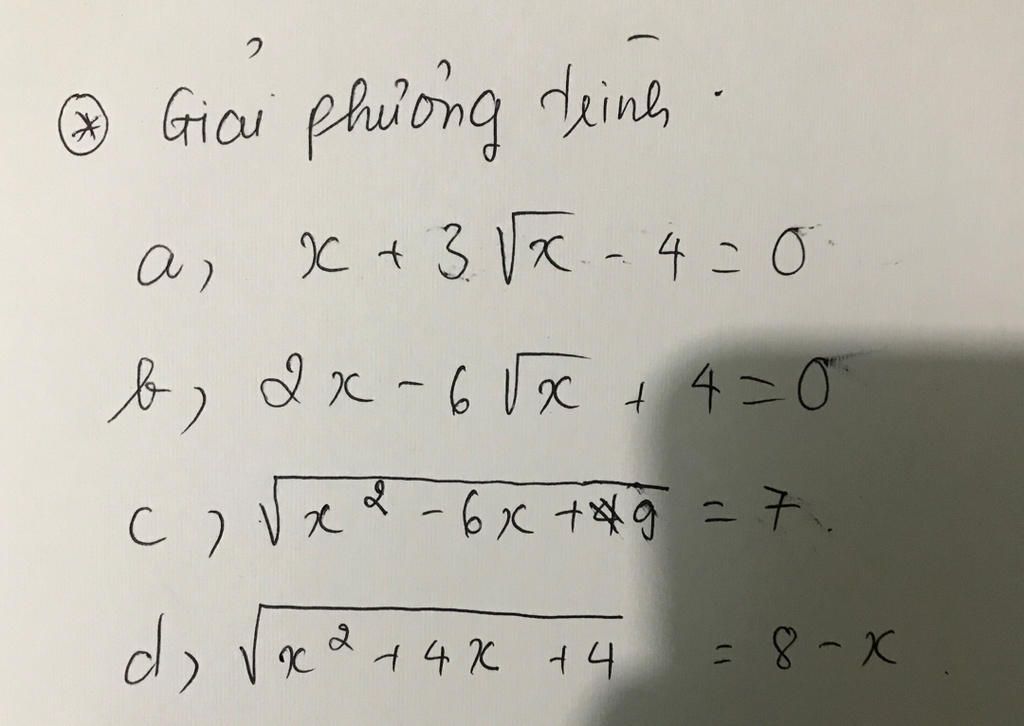 ⊛ Giải phưởng trinh.
a, x + 3√x - 4 = 0
b, 2x - 6√x + 4 = 0
c, √(x² - 6x + 9) = 7.
d, √(x² + 4x + 4) = 8 - x.